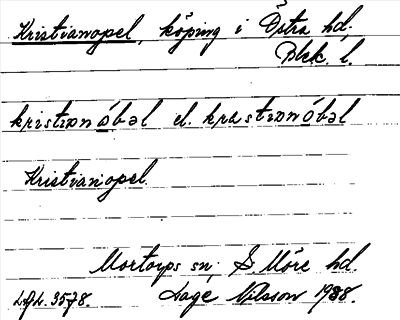 Kristianopel, köping i Östra hd.
Blek. l.
kristɪanóbəl el. krastɪanóbəl
Kristianopel.
Mortorps sn; S. Möre hd.
3578. Nilsson 1938.